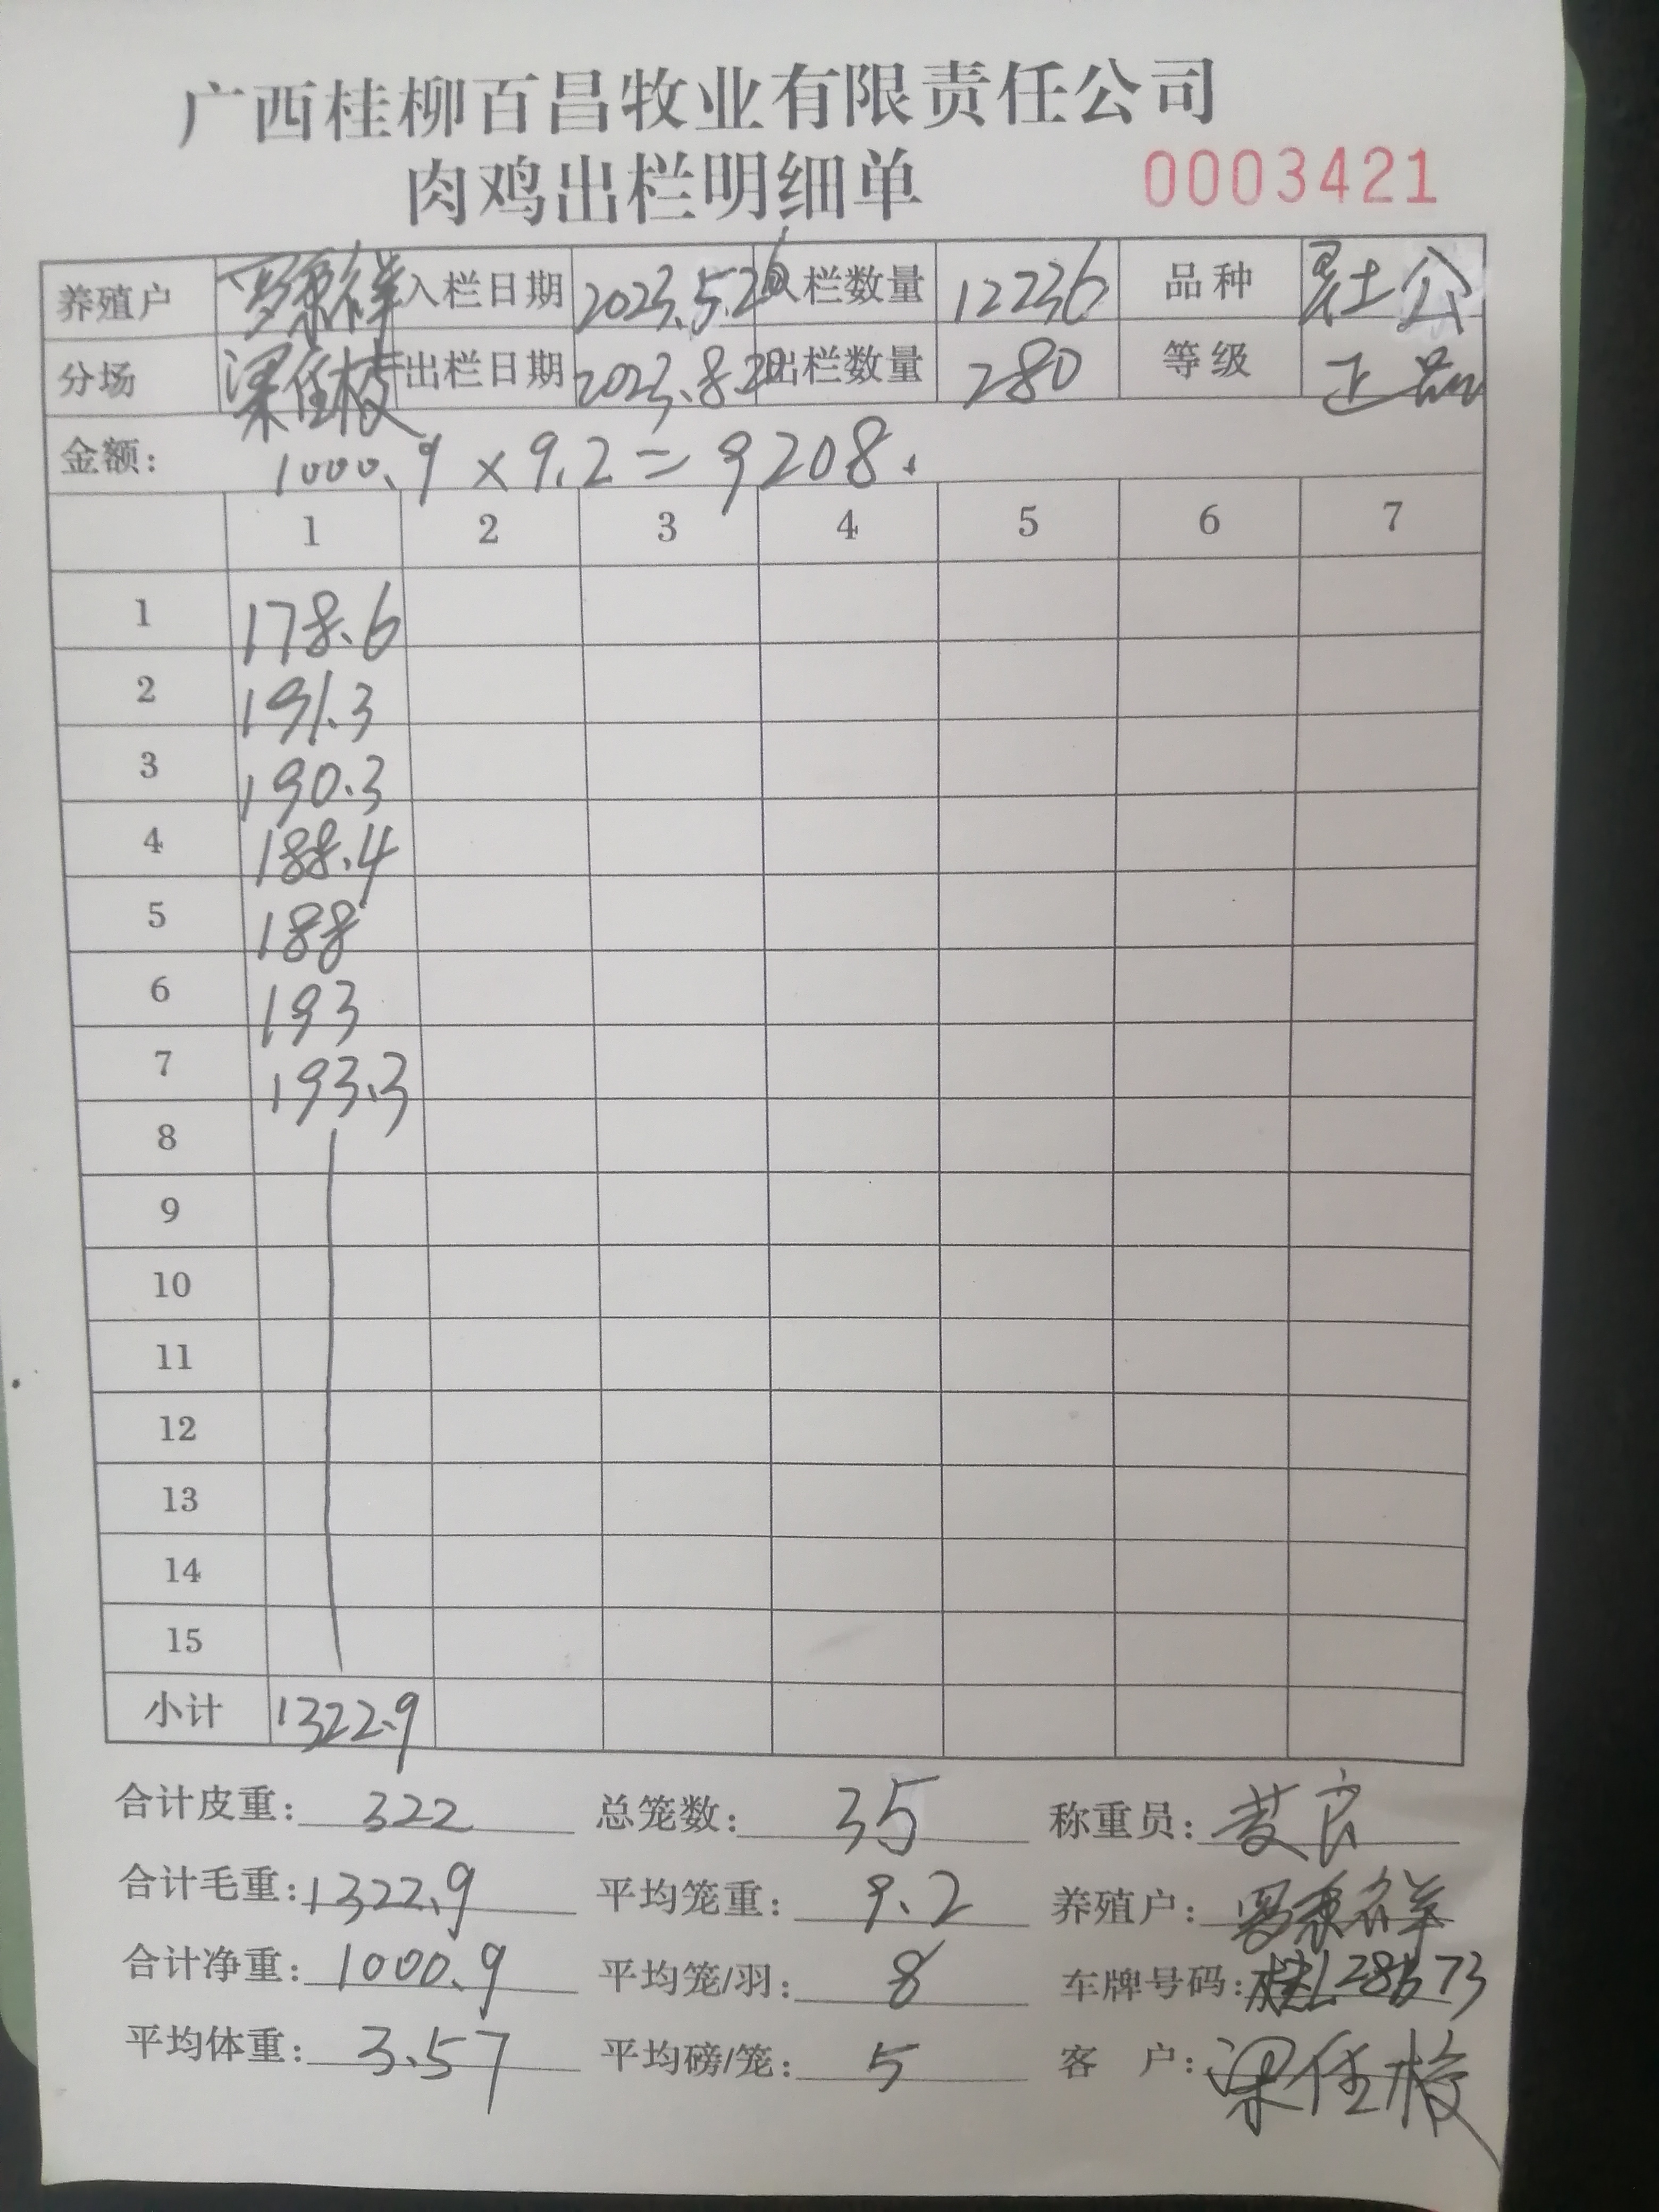 广西桂柳百昌牧业有限责任公司
肉鸡出栏明细单 0003421
养殖户 罗康祥 入栏日期 2023.5.26 入栏数量 12236 品种 土公
分场 梁任枝 出栏日期 2023.8.20 出栏数量 280 等级 正品
金额: 1000.9×9.2=9208.
1 2 3 4 5 6 7
1 178.6
2 191.3
3 190.3
4 188.4
5 188
6 193
7 193.3
8
9
10
11
12
13
14
15
小计 1322.9
合计皮重: 322 总笼数: 35 称重员:
合计毛重: 1322.9 平均笼重: 9.2 养殖户: 罗康祥
合计净重: 1000.9 平均笼/羽: 8 车牌号码:
平均体重: 3.57 平均磅/笼: 5 客 户: 梁任枝